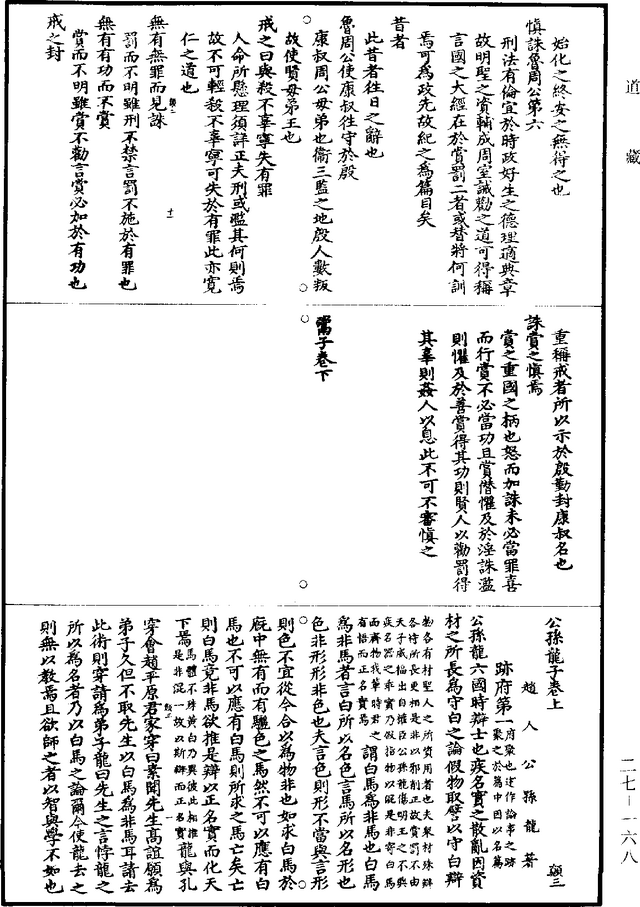 道藏
始化之終安之無待之也
慎誅魯周公第六
刑法有倫宜於時政好生之德理適典章
故明聖之資輔成周室誠勸之道可得稱
言國之大經在於賞罰二者或替將何訓
焉可為政先故紀之為篇目矣
昔者
此昔者往日之辭也
魯周公使康叔往守於殷
康叔周公母弟也衞三監之地殷人數叛
故使賢母弟王也
戒之曰與殺不辜寧失有罪
人命所懸理須詳正夫刑或濫其何則焉
故不可輕殺不辜寧可失於有罪此亦寬
仁之道也
無有無罪而見誅
罰而不明雖刑不禁言罰不施於有罪也
無有有功而不賞
賞而不明雖賞不勸言賞必加於有功也
戒之封
重稱戒者所以示於殷勤封康叔名也
誅賞之慎焉
賞之重國之柄也怒而加誅未必當罪喜
而行賞不必當功且賞僭懼及於淫誅濫
則懼及於善賞得其功則賢人以勸罰得
其辜則姦人以息此不可不審慎之
鬻子卷下
公孫龍子卷上 顛三
趙人公孫龍著
跡府第一 府聚也述作論事之跡聚之於篇中因以名篇
公孫龍六國時辯士也疾名實之散亂因資
材之所長為守白之論假物取譬以守白辯
物各有材聖人之所資用者也夫衆材殊辯
各恃所長更相是非以邪削正故賞罰不由
天子威福出自權臣公孫龍傷明王之不興
疾名器之乖實乃假指物以混是非寄白馬
而齊物我冀時君之有悟而正名實焉 謂白馬為非馬也白馬
為非馬者言白所以名色言馬所以名形也
色非形形非色也夫言色則形不當與言形
則色不宜從今合以為物非也如求白馬於
廐中無有而有驪色之馬然不可以應有白
馬也不可以應有白馬則所求之馬亡矣亡
則白馬竟非馬欲推是辯以正名實而化天
下焉 馬體不殊黃白乃異彼此相推是非混一故以斯辯而正名實 龍與孔
穿會趙平原君家穿曰素聞先生高誼願為
弟子久但不取先生以白馬為非馬耳請去
此術則穿請為弟子龍曰先生之言悖龍之
所以為名者乃以白馬之論爾今使龍去之
則無以教焉且欲師之者以智與學不如也
二七—一六八